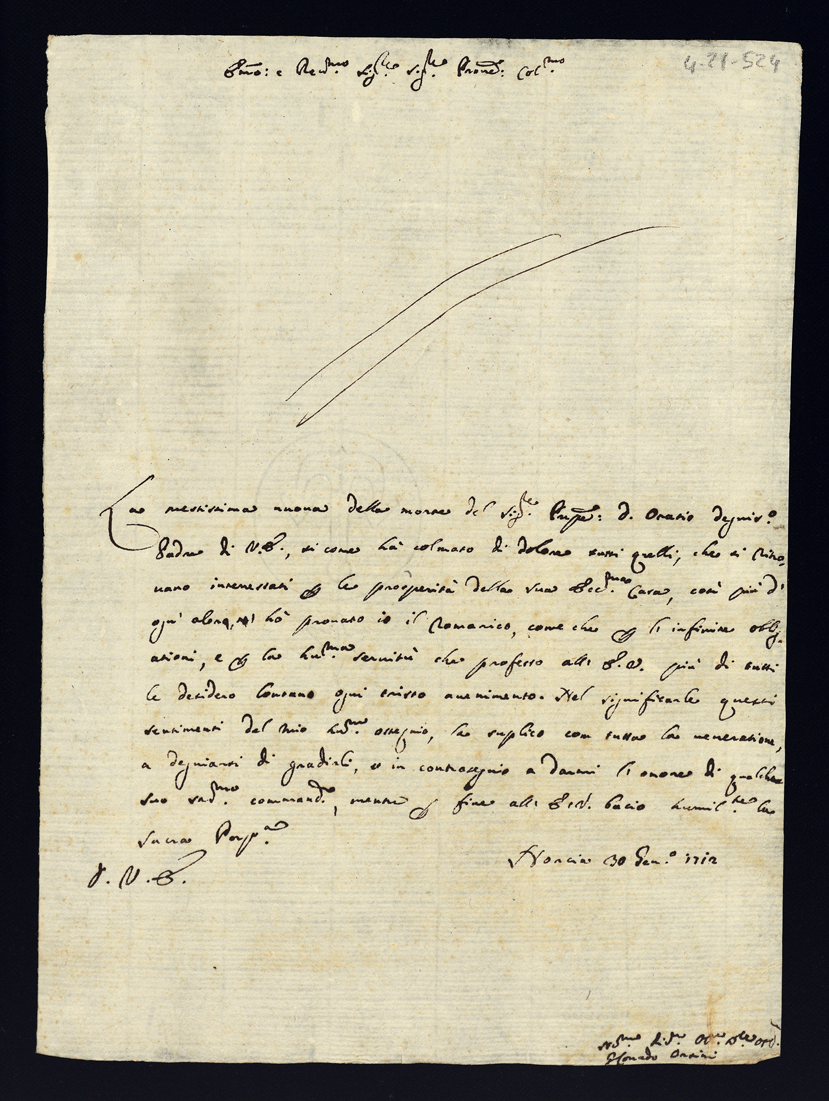 4-21-524
Emo: e Reu.mo Sig.re Sig.re Prone: Col.mo
La mestissima nuoua della morte del Sig.re Prnpe: D. Oratio degniss.o
Padre di V.E., si come hà colmato di dolore tutti quelli, che si ritro-
uano interessati p le prosperità della sua Ecc.ma Casa, così più d'
ogni altro, hò prouato io il ramarico, come che p li infinite oblig-
ationi, e p la hu.ma seruitù che professo all' E.V. più di tutti
le desidero lontano ogni tristo auenimento. Nel significarle questi
sentimenti del mio hu.mo ossequio, la suplico con tutta la ueneratione,
a degniarsi di gradirli, e in contrasegnio a darmi li onore di qualche
suo stim.mo commando, mentre p fine all' E.V. bacio humil.te la
Sacra Porp.a
D. V. E.
Norcia 30 Gen.o 1712
Hu.mo Di.mo Ob.mo Se.re
Corrado Orsini